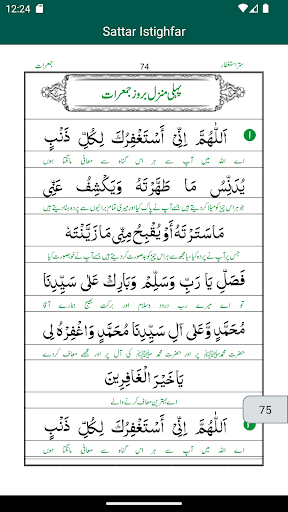 12:24
Sattar Istighfar
جمعرات 74 ستر استغفار
پہلی منزل بروز جمعرات
۱ اَللّٰهُمَّ اِنِّىْ اَسْتَغْفِرُكَ لِكُلِّ ذَنْۢبٍ
اے اللہ میں آپ سے ہر اس گناہ سے معافی مانگتا ہوں
يُدَنِّسُ مَا طَهَّرْتَهٗ وَيَكْشِفُ عَنِّىْ
جو ہر اس چیز کو میلا کر دیتے ہیں جسے آپ نے پاک کیا اور میری تمام برائیوں سے پردہ ہٹا دیتے ہیں
مَا سَتَرْتَهٗ اَوْ يُقَبِّحُ مِنِّىْ مَا زَيَّنْتَهٗ
جس پر آپ نے پردہ کیا، یا مجھ سے ہر اس چیز کو بدصورت کر دیتے ہیں جسے آپ نے خوبصورت کیا
فَصَلِّ يَا رَبِّ وَسَلِّمْ وَبَارِكْ عَلٰى سَيِّدِنَا
تو اے میرے رب درود وسلام اور برکت بھیج ہمارے آقا
مُحَمَّدٍ وَّعَلٰى اٰلِ سَيِّدِنَا مُحَمَّدٍ وَاغْفِرْهُ لِىْ
حضرت محمد ﷺ پر اور حضرت محمد ﷺ کی آل پر اور مجھے معاف کر دے
يَا خَيْرَ الْغَافِرِيْنَ
اے بہترین معاف کرنے والے
75
اَللّٰهُمَّ اِنِّىْ اَسْتَغْفِرُكَ لِكُلِّ ذَنْۢبٍ
اے اللہ میں آپ سے ہر اس گناہ سے معافی مانگتا ہوں